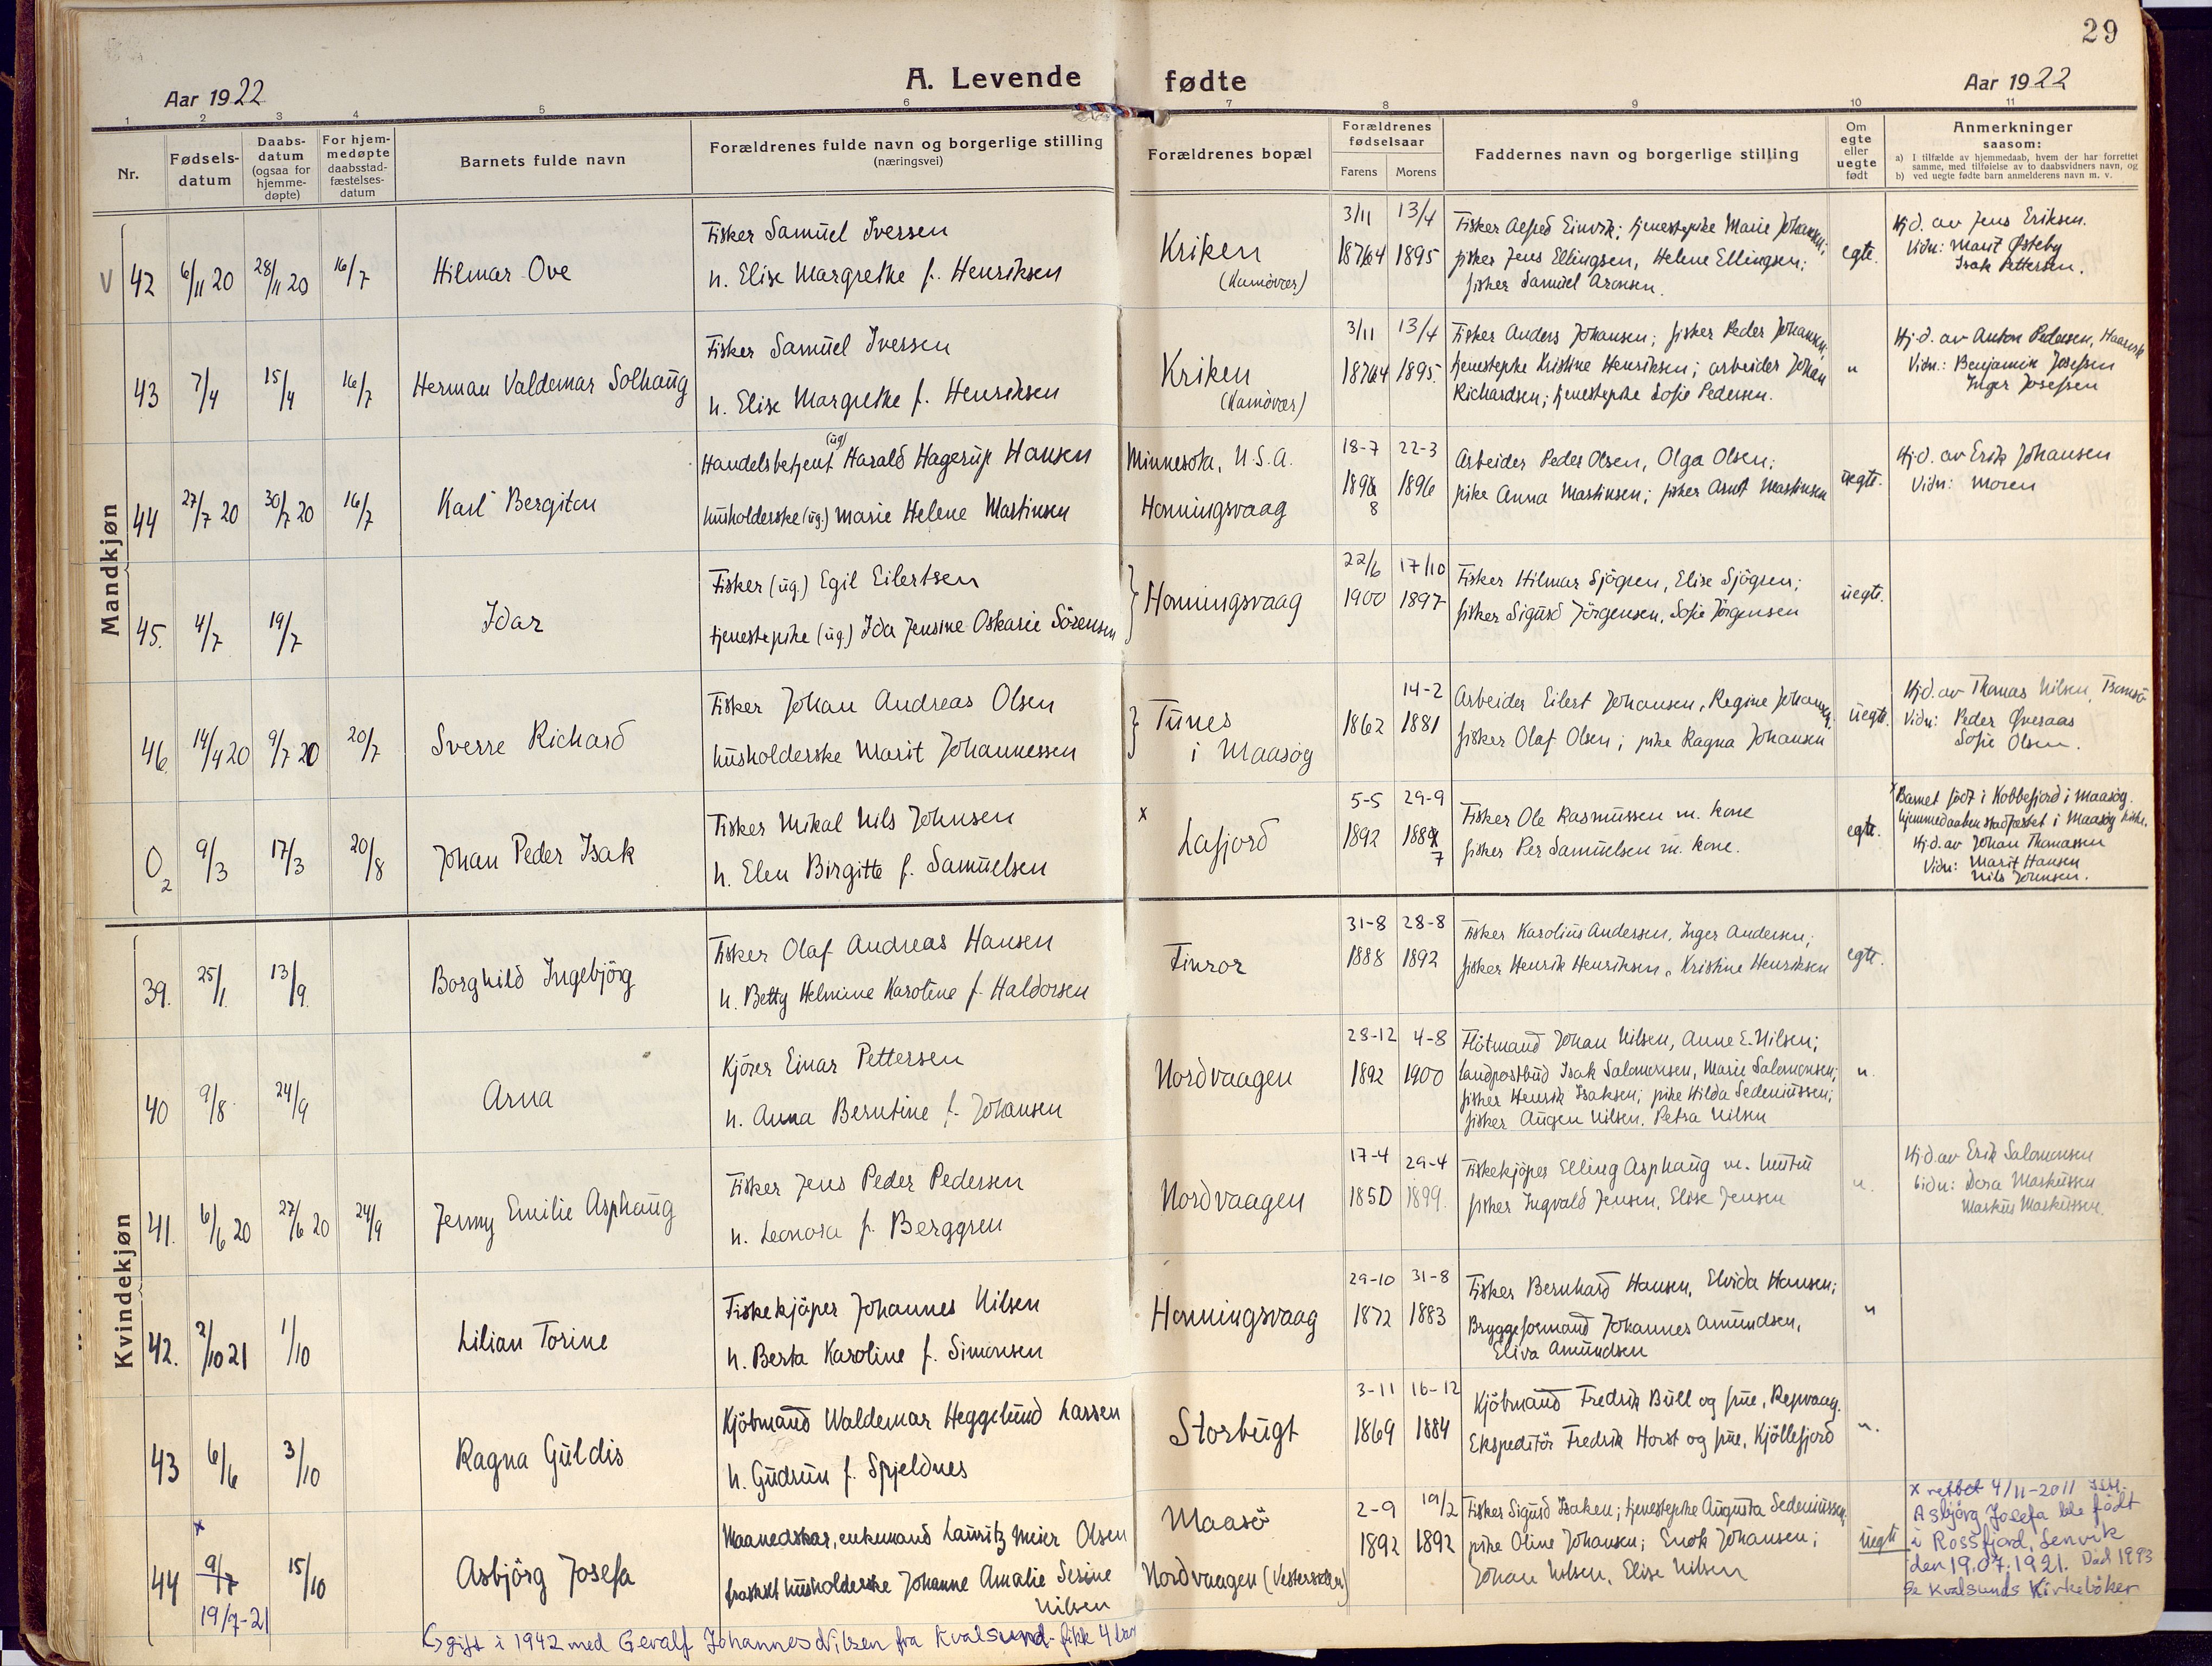 29
A. Levende fødte
Aar 1922
Aar 1922
1 2 3 4 5 6 7 8 9 10 11
Nr.
Fødsels-
datum
Daabs-
datum
(ogsaa for
hjemme-
døpte)
For hjem-
medøpte
daabsstad-
fæstelses-
datum
Barnets fulde navn
Forældrenes fulde navn og borgerlige stilling
(næringsvei)
Forældrenes bopæl
Forældrenes
fødselsaar
Farens Morens
Faddernes navn og borgerlige stilling
Om
egte
eller
uegte
født
Anmerkninger
saasom:
a) I tilfælde av hjemmedaab, hvem der har forrettet
samme, med tilføielse av to daabsvidners navn, og
b) ved uegte fødte barn anmelderens navn m. v.
Mandkjøn
V 42 6/11 20 28/11 20 16/7 Hilmar Ove
Fisker Samuel Iversen
h. Elise Margrethe f. Henriksen
Kriken
(Kamövær)
3/11 13/4
1864 1895
Fisker Alfred Einvik; tjenestepike Marie Johansen;
fisker Jens Ellingsen, Helene Ellingsen;
fisker Samuel Aronsen.
egte.
Hj.d. av Jens Eriksen.
Vidn: Marit Østeby
Isak Pettersen.
43 7/4 15/4 16/7 Herman Valdemar Solhaug
Fisker Samuel Iversen
h. Elise Margrethe f. Henriksen
Kriken
(Kamövær)
3/11 13/4
1864 1895.
Fisker Anders Johansen; fisker Peder Johansen;
tjenestepike Kristine Henriksen; arbeider Johan
Richardsen; tjenestepike Sofie Pedersen.
"
Hj.d. av Anton Pedersen,
Vidn.: Benjamin Josefsen
Inger Josefsen
44 27/7 20 30/7 20 16/7 Karl Bergiton
Handelsbetjent (ug) Harald Hagerup Hansen
husholderske (ug.) Marie Helene Martinsen
Minnesota, U.S.A.
Honningsvaag
18-7 22-3
1898 1896
Arbeider Peder Olsen, Olga Olsen;
pike Anna Martinsen; fisker Arnt Martinsen
uegte.
Hj.d. av Erik Johansen
Vidn: Moren
45. 4/7 19/7 Idar
Fisker (ug.) Egil Eilertsen
tjenestepike (ug.) Ida Jensine Oskarie Sörensen
Honningsvaag
22/6 17/10
1900 1897
Fisker Hilmar Sjögren, Elise Sjögren;
fisker Sigurd Jörgensen, Sofie Jörgensen
uegte.
46. 14/4 20 9/7 20 20/7 Sverre Richard
Fisker Johan Andreas Olsen
husholderske Marit Johannessen
Tunes
i Maasøy
14-2
1862 1881
Arbeider Eilert Johansen, Regine Johansen;
fisker Olaf Olsen; pike Ragna Johansen
uegte.
Hj.d. av Thomas Nilsen,
Vidn: Peder Øveraas
Sofie Olsen.
0 2 9/3 17/3 20/8 Johan Peder Isak
Fisker Mikal Nils Johnsen
h. Elen Birgitte f. Samuelsen
x Lafjord
5-5 29-9
1892 1887
Fisker Ole Rasmussen m. kone
fisker Per Samuelsen m. kone.
egte.
x Barnet født i Kobbefjord i Maasøy.
hjemmedaaben stadfæstet i Maasøy kirke.
Hj.d. av Johan Thomassen
Vidn: Marit Hansen
Nils Johnsen.
Kvindekjøn
39. 25/1. 13/9. Borghild Ingebjörg
Fisker Olaf Andreas Hansen
h. Betty Helmine Karoline f. Haldorsen
Finvor
31-8 28-8
1888 1892
Fisker Karolius Andersen, Inger Andersen;
fisker Henrik Henriksen, Kristine Henriksen
egte.
40 9/8. 24/9 Arna
Kjörer Einar Pettersen
h. Anna Berntine f. Johansen
Nordvaagen
28-12 4-8
1892 1900
Flötmand Johan Nilsen, Anne E. Nilsen;
landpostbud Isak Salomonsen, Marie Salomonsen;
fisker Henrik Isaksen; pike Hilda Sedeniussen;
fisker Augen Nilsen, Petra Nilsen
"
41. 6/6 20 27/6 20 24/9 Jenny Emilie Asphaug
Fisker Jens Peder Pedersen
h. Leonora f. Berggren
Nordvaagen
17-4 29-4
1850 1899.
Fiskekjöper Elling Asphaug m. hustru
fisker Ingvald Jensen, Elise Jensen
"
Hj.d. av Erik Salomonsen
Vidn: Dora Markussen
Markus Markussen.
42. 2/10 21 1/10 Lilian Torine
Fiskekjöper Johannes Nilsen
h. Berta Karoline f. Simonsen
Honningsvaag
29-10 31-8
1872 1883
Fisker Bernhard Hansen, Elvida Hansen;
Bryggeformand Johannes Amundsen,
Eliva Amundsen
"
43 6/6 3/10 Ragna Guldis
Kjöbmand Waldemar Heggelund Larsen
h. Gudrun f. Spjeldnes
Storbugt
3-11 16-12
1869 1884
Kjöbmand Fredrik Bull og frue, Repvaag.
Ekspeditör Fredrik Horst og frue, Kjöllefjord
"
44 x 9/7 15/10 Asbjörg Josefa
19/7-21
Maanedskar, enkemand Lauritz Meier Olsen
fraskilt husholderske Johanne Amalie Serine
Nilsen
Maasö
Nordvaagen
2-9 19/2
1892 1892
Fisker Sigurd Isaksen; tjenestepike Augusta Sedeniussen,
pike Oline Johansen; Enok Johansen;
Johan Nilsen, Elise Nilsen
uegte
x rettet 4/11-2011
Asbjörg Josefa ble födt
i Rossfjord, Lenvik
den 19.07.1921. Död 1993
Se Kvalsunds Kirkeböker
gift i 1942 med Gevalf Johannes Nilsen fra Kvalsund - fikk 4 barn